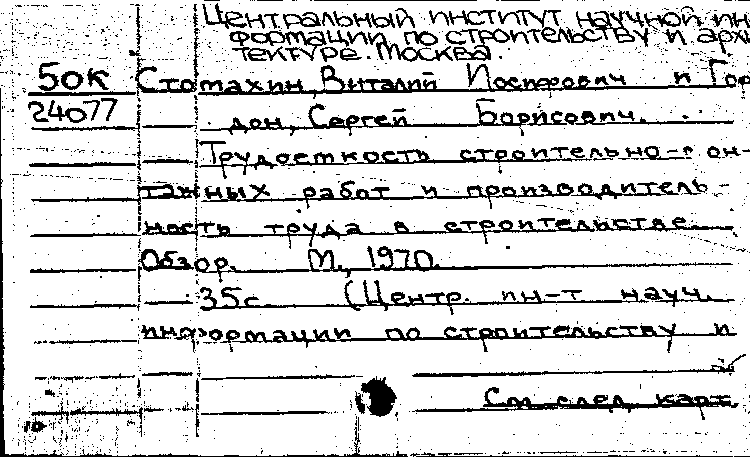 Центральный институт научной ин-
формации по строительству и архи
тектуре. Москва.
50к Стомахин, Виталий Иосифович и Гор
24077 дон, Сергей Борисович.
Трудоемкость строительно-монтажных
тажных работ и производитель-
ность труда в строительстве.
Обзор. М., 1970.
35с. (Центр. ин-т науч.
информации по строительству и
См. след. карт.
10